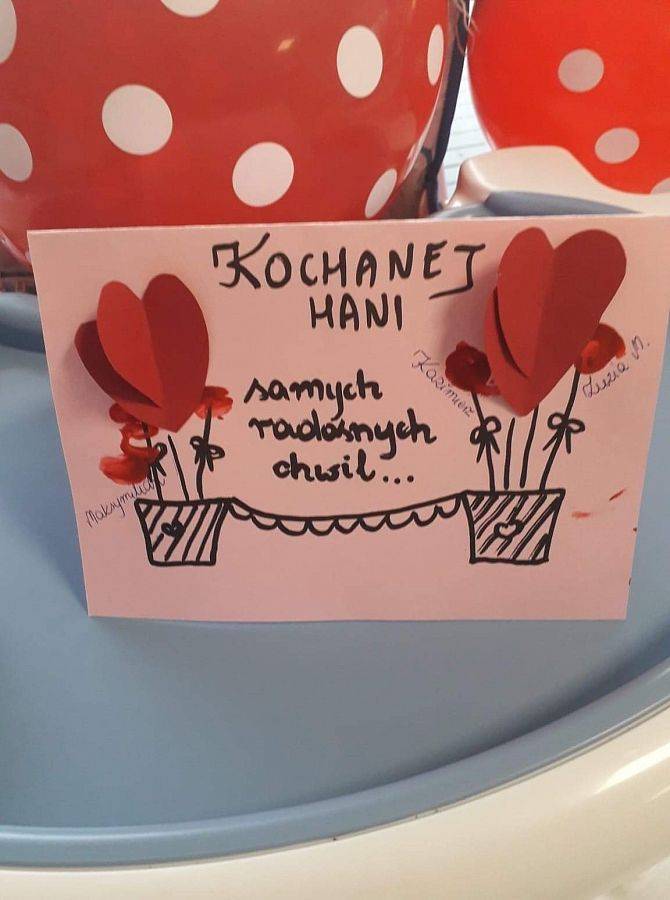 KOCHANEJ
HANI
samych
radosnych
chwil...
Kazimierz
Zuzia M.
Maksymilian